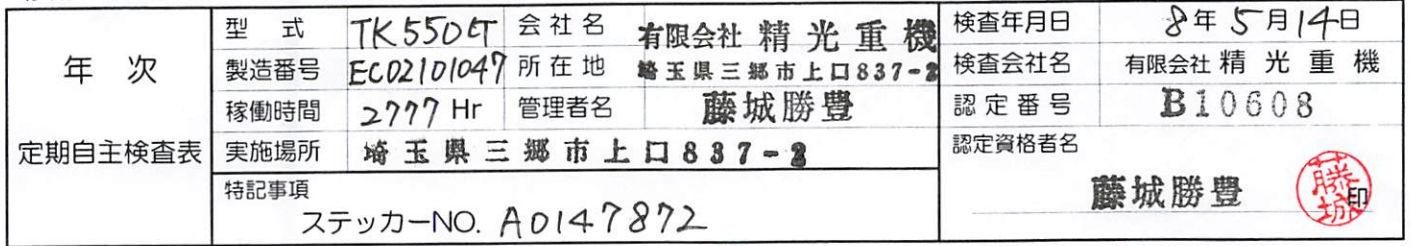 年次
定期自主検査表
型式 TK550CT 会社名 有限会社 精光重機
製造番号 EC02101047 所在地 埼玉県三郷市上口837-2
稼働時間 2777 Hr 管理者名 藤城勝豊
実施場所 埼玉県三郷市上口837-2
特記事項
ステッカーNO. A0147872
検査年月日 8年5月14日
検査会社名 有限会社 精光重機
認定番号 B10608
認定資格者名
藤城勝豊 藤城 印